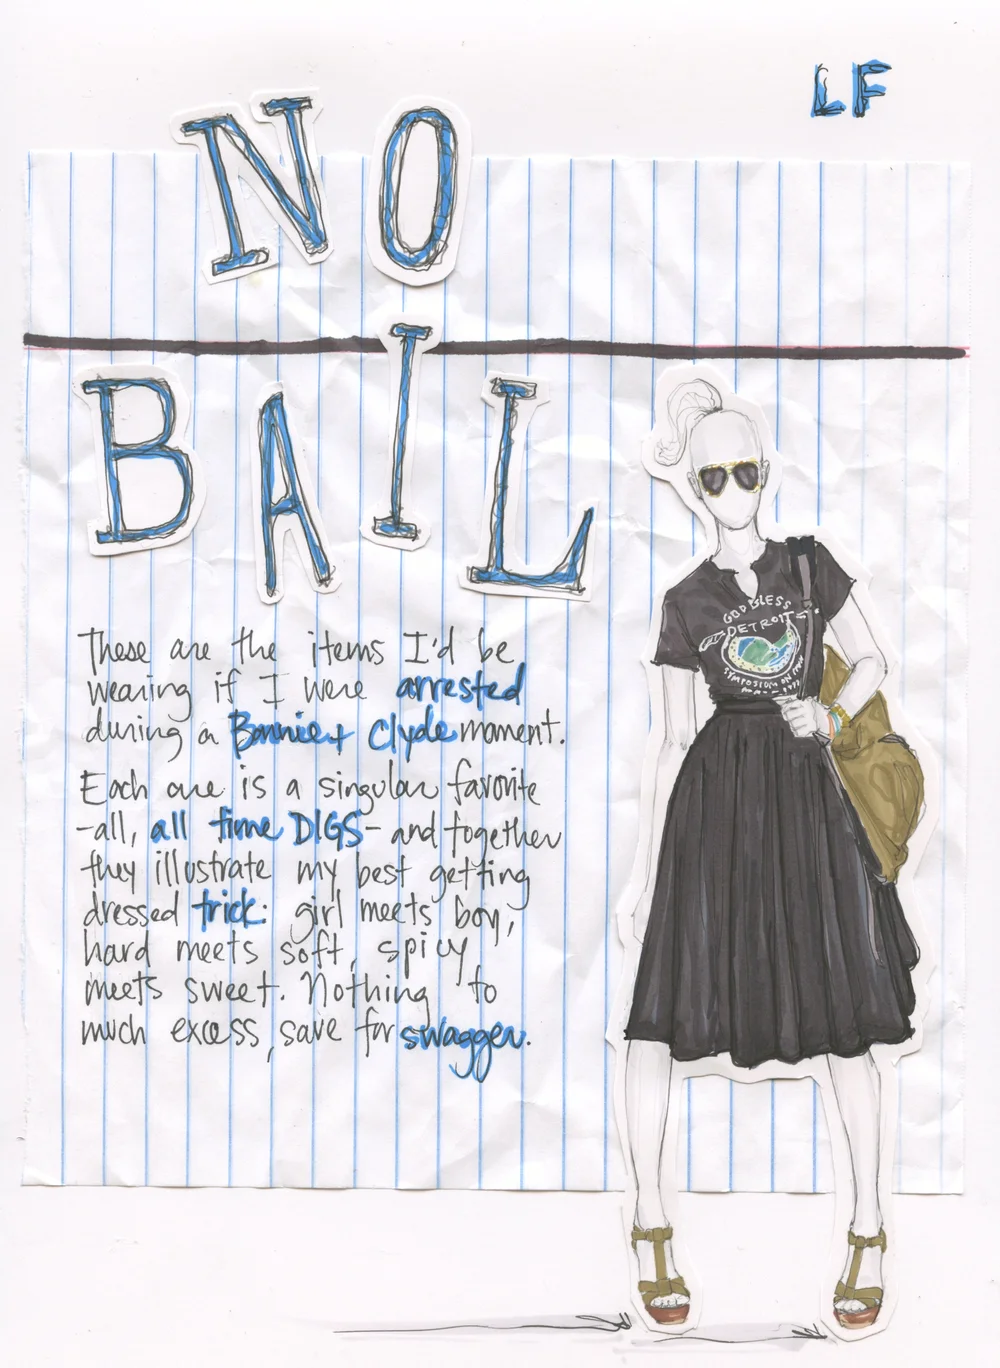 LF
NO
BAIL
These are the items I'd be
wearing if I were arrested
during a Bonnie + Clyde moment.
Each one is a singular favorite
-all, all time DIGS- and together
they illustrate my best getting
dressed trick: girl meets boy,
hard meets soft, spicy
meets sweet. Nothing to
much excess, save for swagger.
GOD BLESS
DETROIT
SYMPOSIUM ON